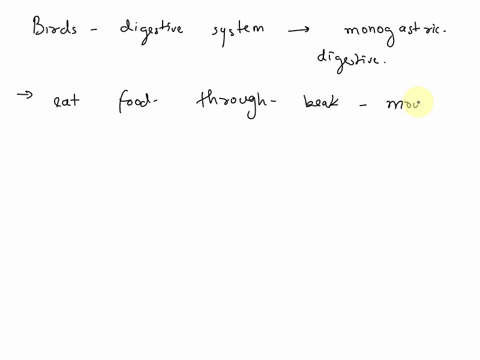 Birds - digestive system → monogastric.
digestive.
→ eat food - through - beak - mou